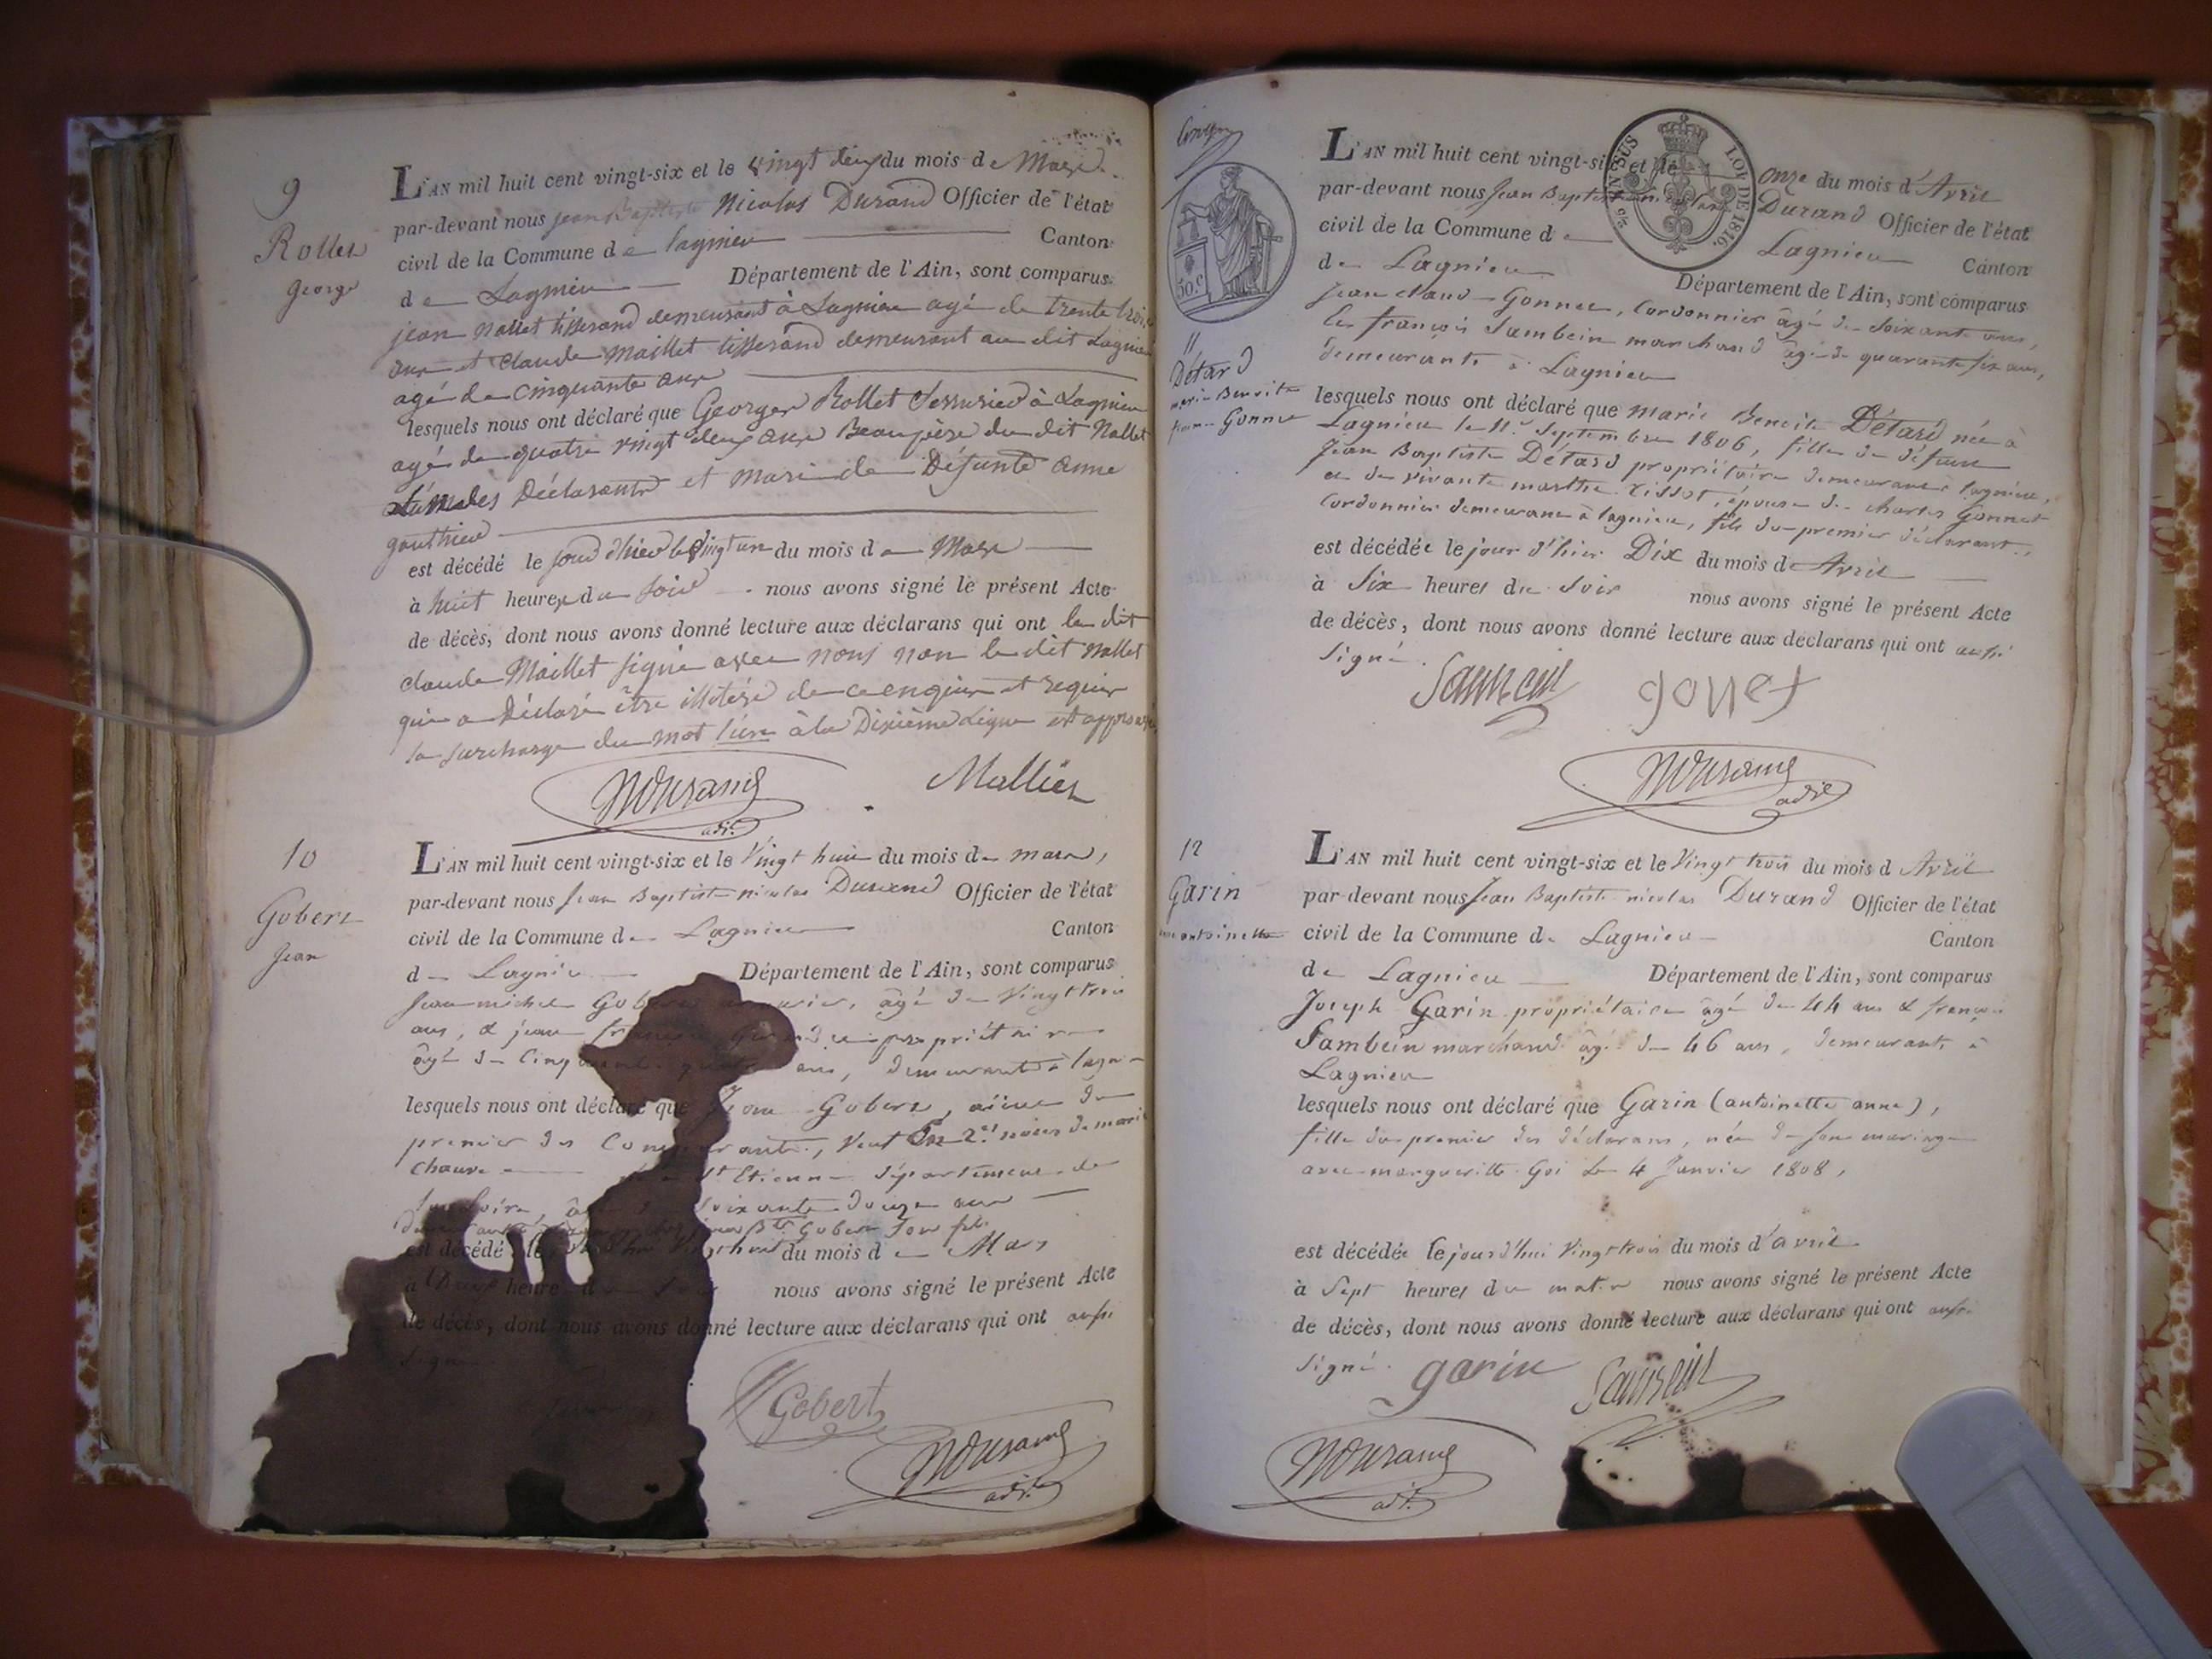 9
Rollet
George
L'AN mil huit cent vingt-six et le vingt deux du mois de Mars
par-devant nous jean Baptiste Nicolas Durand Officier de l'état
civil de la Commune de Lagnieu Canton
de Lagnieu Département de l'Ain, sont comparus
jean nallet tisserand demeurant à Lagnieu agé de trente trois
ans et Claude Maillet tisserand demeurant au dit Lagnieu
agé de cinquante ans
lesquels nous ont déclaré que George Rollet Serrurier à Lagnieu
agé de quatre vingt deux ans Beaupère du dit Nallet
Déclarants et mari de Défunte anne
gouthier
est décédé le jour d'hier vingt un du mois de Mars
à huit heures du soir nous avons signé le présent Acte
de décès, dont nous avons donné lecture aux déclarans qui ont le dit
claude Maillet signé avec nous non le dit nallet
qui a Déclaré être illitéré de ce enquis et requis
la surcharge du mot l'un à la Dixième Ligne est approuvée
NDurand
adj.t
Mallier
10
Gobert
Jean
L'AN mil huit cent vingt-six et le vingt huit du mois de mars,
par-devant nous Jean Baptiste nicolas Durand Officier de l'état
civil de la Commune de Lagnieu Canton
de Lagnieu Département de l'Ain, sont comparus
Jean michel Gobert âgé de vingt trois
ans, & jean françois propriétaire
âgé de Cinquante quatre ans, demeurants à lagn
lesquels nous ont déclaré que Jean Gobert, aïeul du
premier des Comparants, veuf en 2.es noces de marie
Chauve St Etienne département de
la Loire, âgé de soixante douze ans
Gobert son fils
est décédé le vingt huit du mois de Mars
à heure du soir nous avons signé le présent Acte
de décès, dont nous avons donné lecture aux déclarans qui ont aussi
signé
Gobert
NDurand
adj.t
50.c
TIMBRE EN SUS
LOI DE 1816.
11
Détard
marie Benoite
femme Gonnet
L'AN mil huit cent vingt-six et le onze du mois d'Avril
par-devant nous Jean Baptiste nicolas Durand Officier de l'état
civil de la Commune de Lagnieu Canton
de Lagnieu Département de l'Ain, sont comparus
Jean Claud Gonnet, Cordonnier âgé de soixante ans,
& françois Sambein marchand âgé de quarante six ans,
demeurants à Lagnieu
lesquels nous ont déclaré que marie Benoite Détard née à
Lagnieu le 11.e Septembre 1806, fille de défunt
Jean Baptiste Détard propriétaire demeurant à lagnieu,
et de vivante marthe Tissot, épouse de charles Gonnet
Cordonnier demeurant à lagnieu, fils du premier déclarant,
est décédée le jour d'hier Dix du mois de Avril
à Six heures du soir nous avons signé le présent Acte
de décès, dont nous avons donné lecture aux déclarans qui ont aussi
signé.
Sambein
gonet
NDurand
adj.t
12
Garin
anne antoinette
L'AN mil huit cent vingt-six et le vingt trois du mois d Avril
par-devant nous Jean Baptiste nicolas Durand Officier de l'état
civil de la Commune de Lagnieu Canton
de Lagnieu Département de l'Ain, sont comparus
Joseph Garin propriétaire âgé de 44 ans & françois
Sambein marchand âgé de 46 ans, demeurants à
Lagnieu
lesquels nous ont déclaré que Garin (antoinette anne),
fille du premier des déclarans, née de son mariage
avec margueritte Goi le 4 Janvier 1808,
est décédée le jourd'hui vingt trois du mois d'avril
à Sept heures du matin nous avons signé le présent Acte
de décès, dont nous avons donné lecture aux déclarans qui ont aussi
signé.
garin
Sambein
NDurand
adj.t